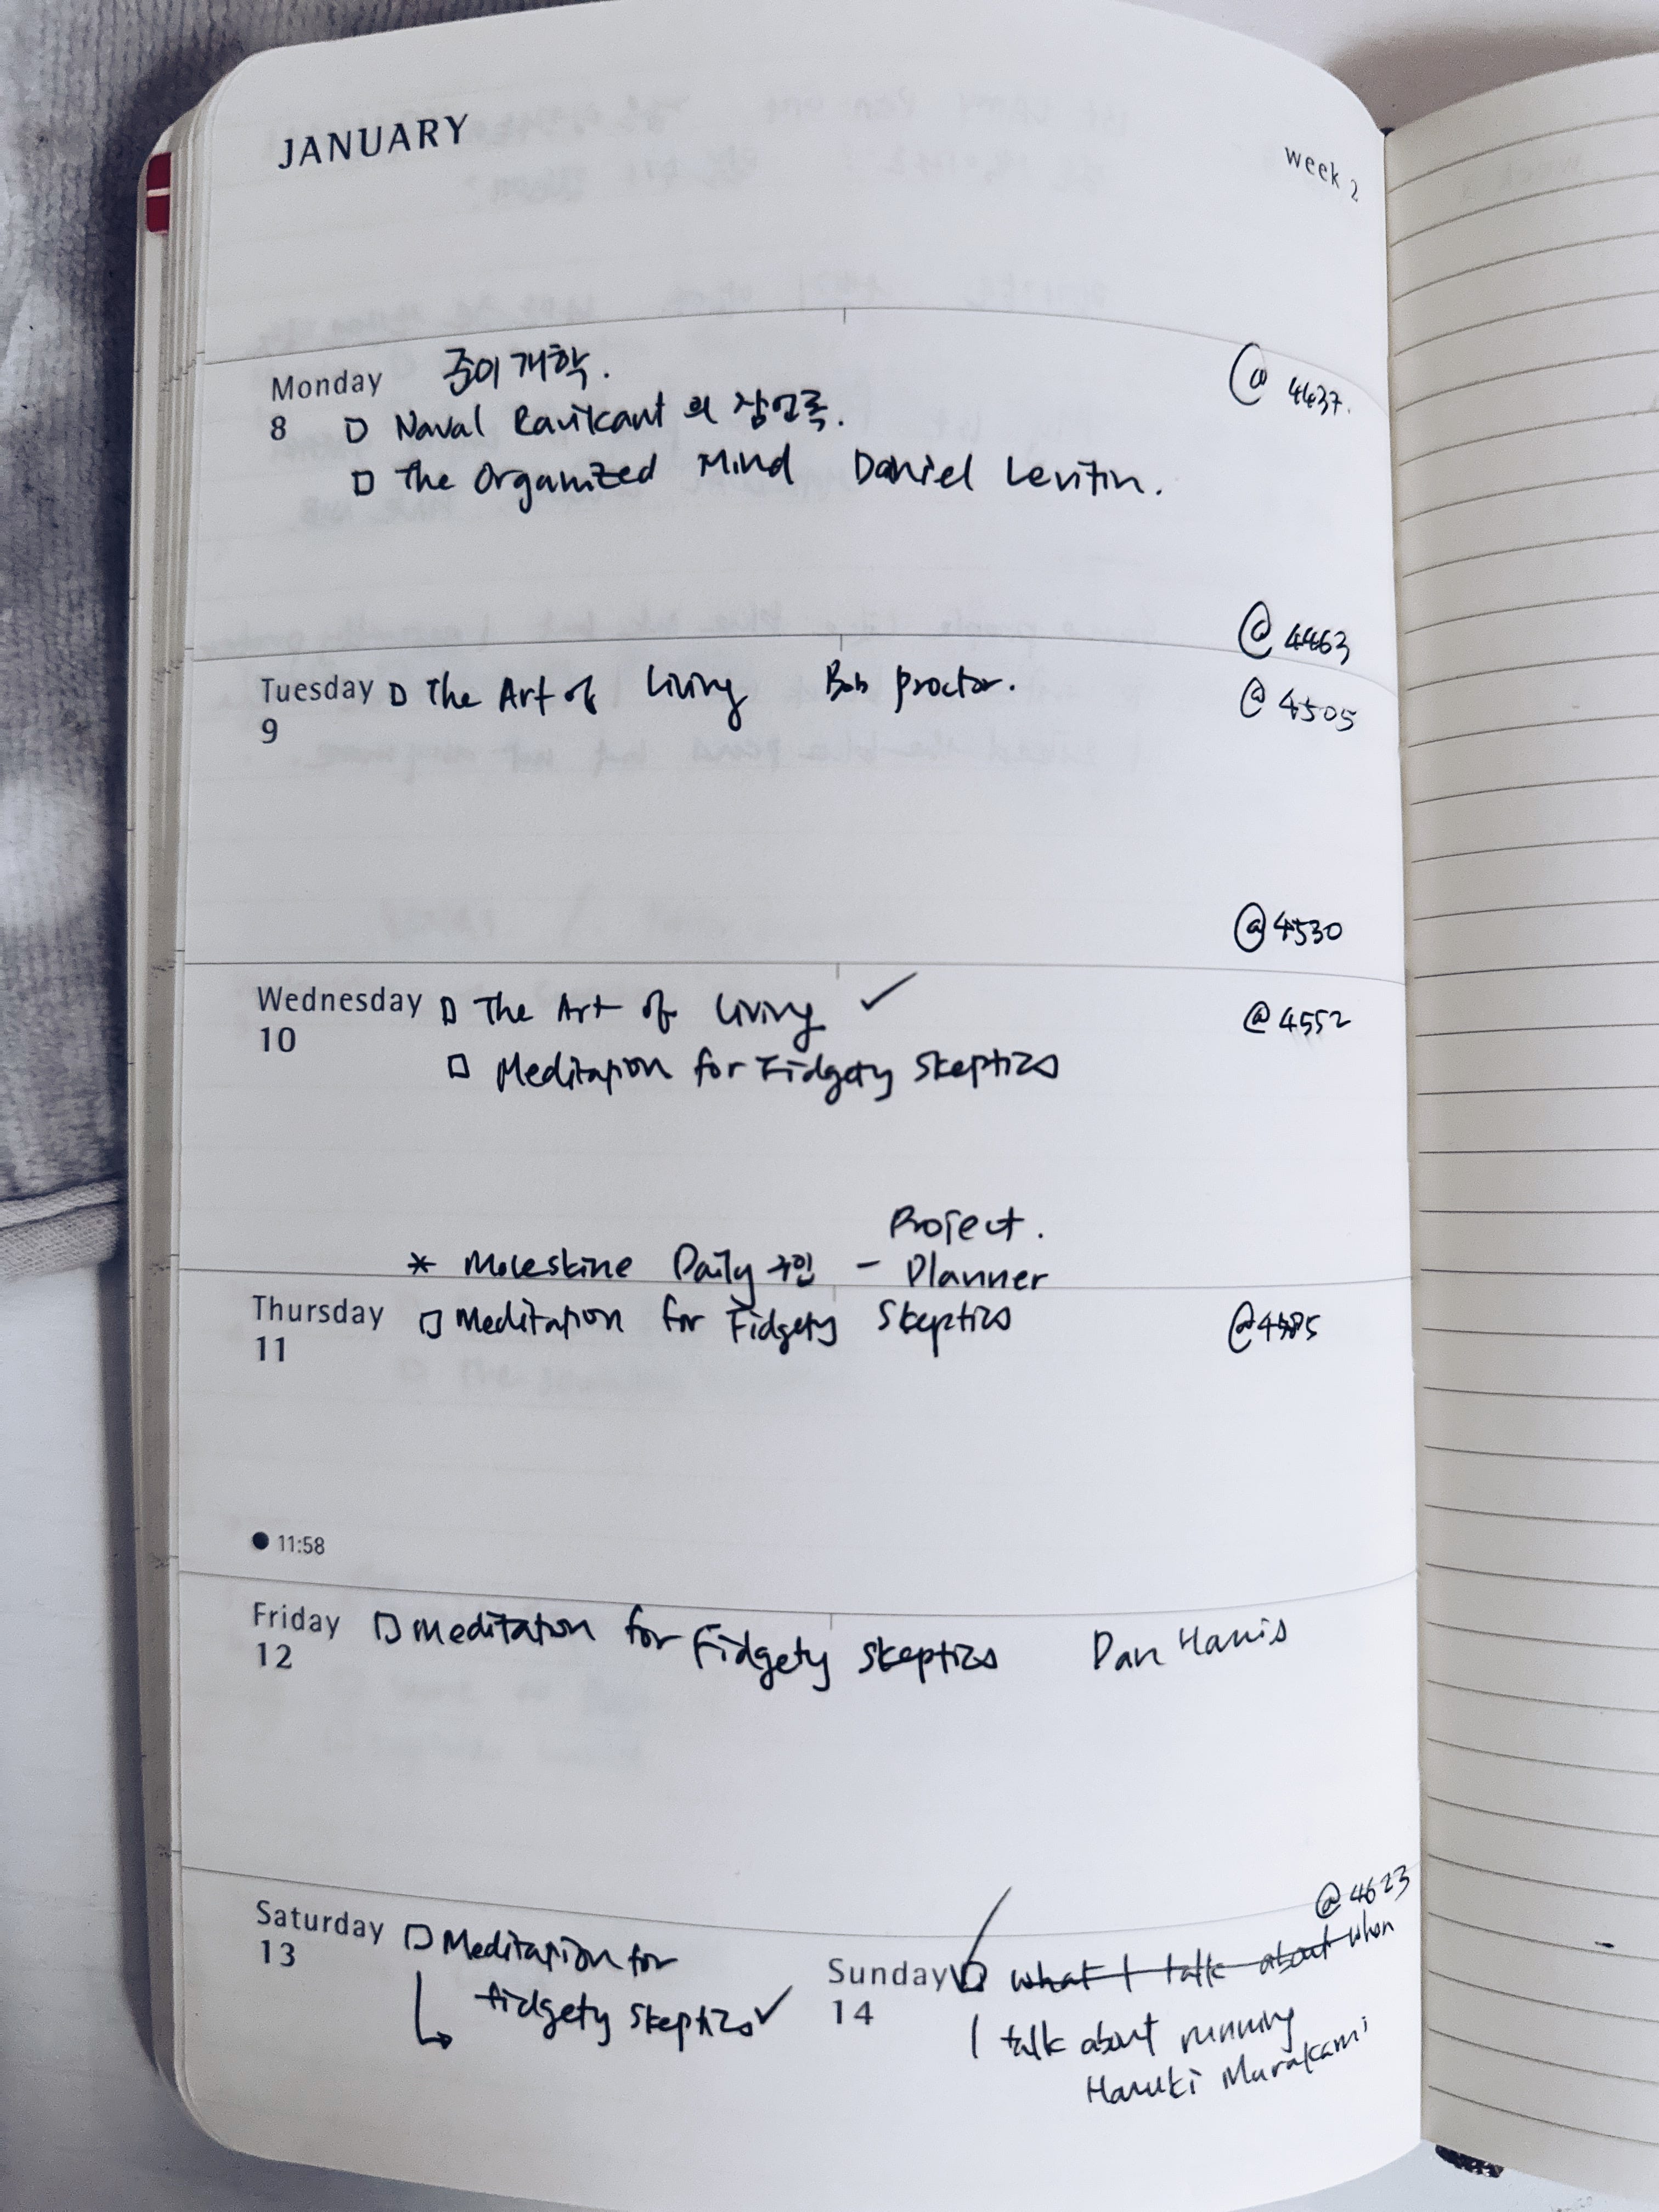 JANUARY
week 2
Monday 준이 개학. @ 4437.
8 Naval Ravikant의 잠언록.
The Organized Mind Daniel Levitin.
@ 4463
Tuesday The Art of Living Bob Proctor. @ 4505
9
@ 4530
Wednesday The Art of Living ✓ @ 4552
10 Meditation for Fidgety Skeptics
Project.
* Moleskine Daily 구인 - Planner
Thursday Meditation for Fidgety Skeptics @ 4585
11
11:58
Friday Meditation for Fidgety Skeptics Dan Harris
12
@ 4623
Saturday Meditation for
13 fidgety skeptics ✓
Sunday what I talk about when
14 I talk about running
Haruki Murakami